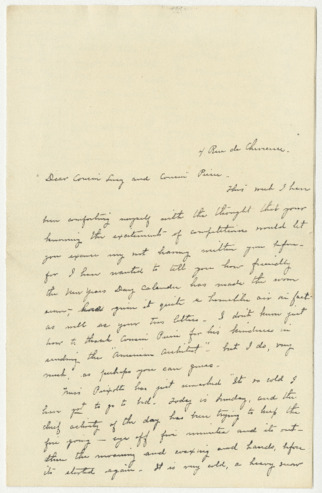 4 Rue de Chevreuse.
Dear Cousin Lucy and Cousin Pierre.
This week I have
been comforting myself with the thought that your
knowing the excitement of competitions would let
you excuse my not having written you before.
for I have wanted to tell you how friendly
the New Years Day Calendar has made the room
seem, given it quite a homelike air in fact
as well as your two letters. I don't know just
how to thank Cousin Pierre for his kindness in
sending the "American Architect" but I do, very
much, as perhaps you can guess.
Miss has just "It's so cold I
have got to go to bed. Today is Sunday, and the
chief activity of the day has been trying to keep the
fire going — eye off five minutes and it's out.
then the moaning and waxing and hands, before
it's started again. It is very cold, a heavy snow